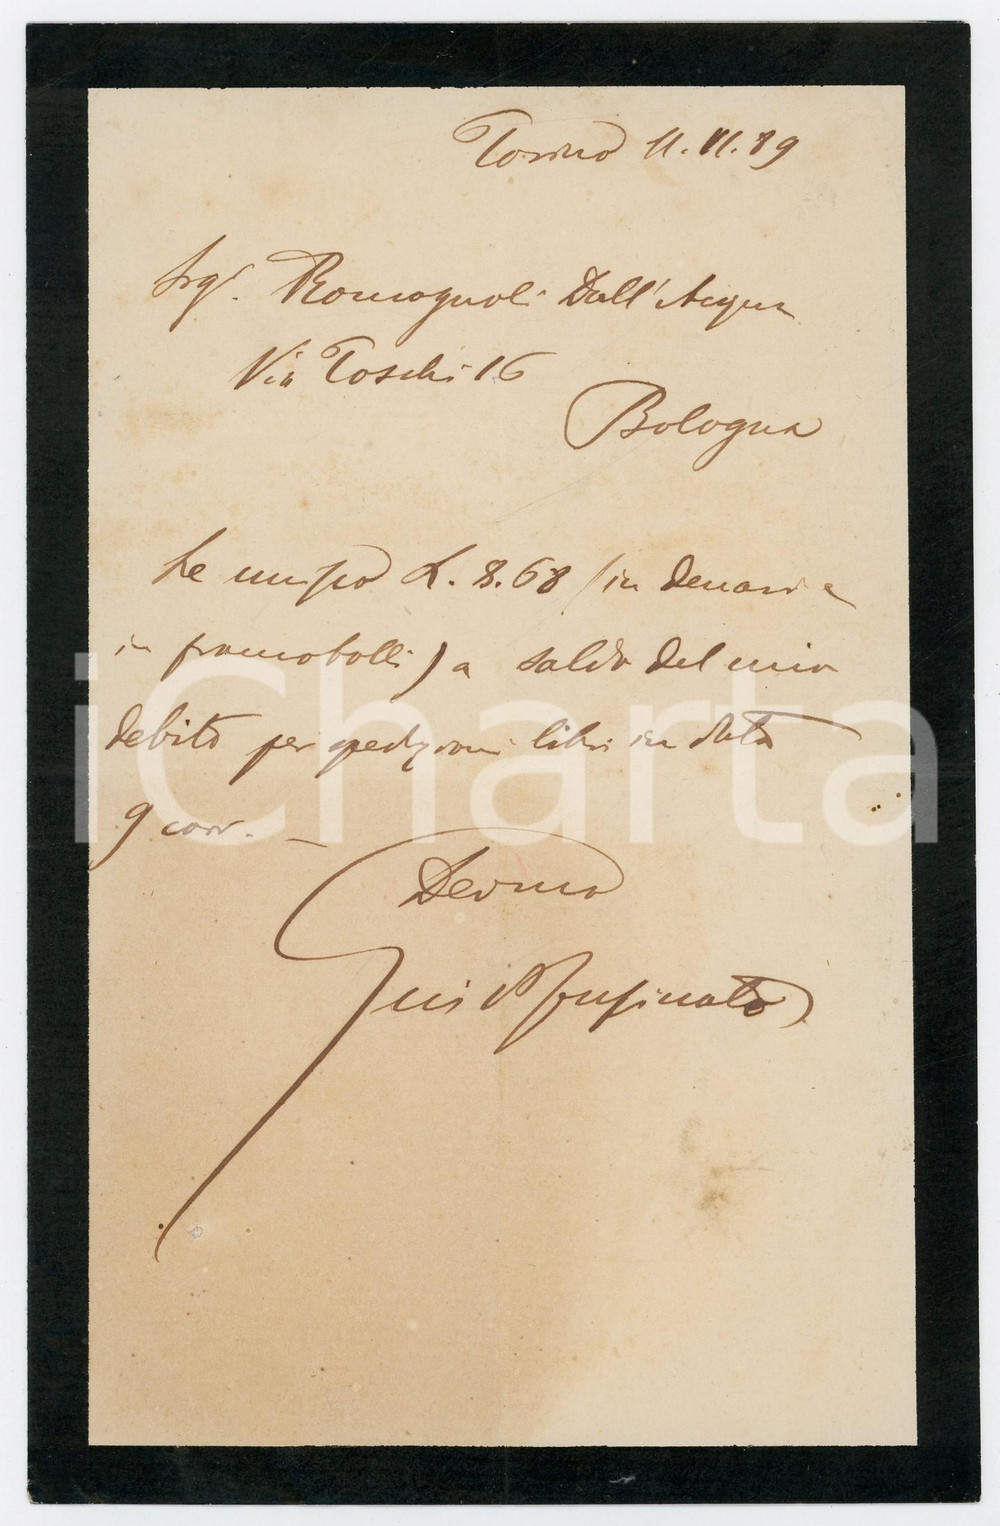 Torino 11.VI.89
Sigʳ. Romagnoli Dall'Acqua
Via Toschi 16
Bologna
Le unisco L. 8.68 (in denari e
in francobolli) a saldo del mio
debito per spedizioni libri in data
9 corr. _
Devmo
Guido Fusinato
iCharta